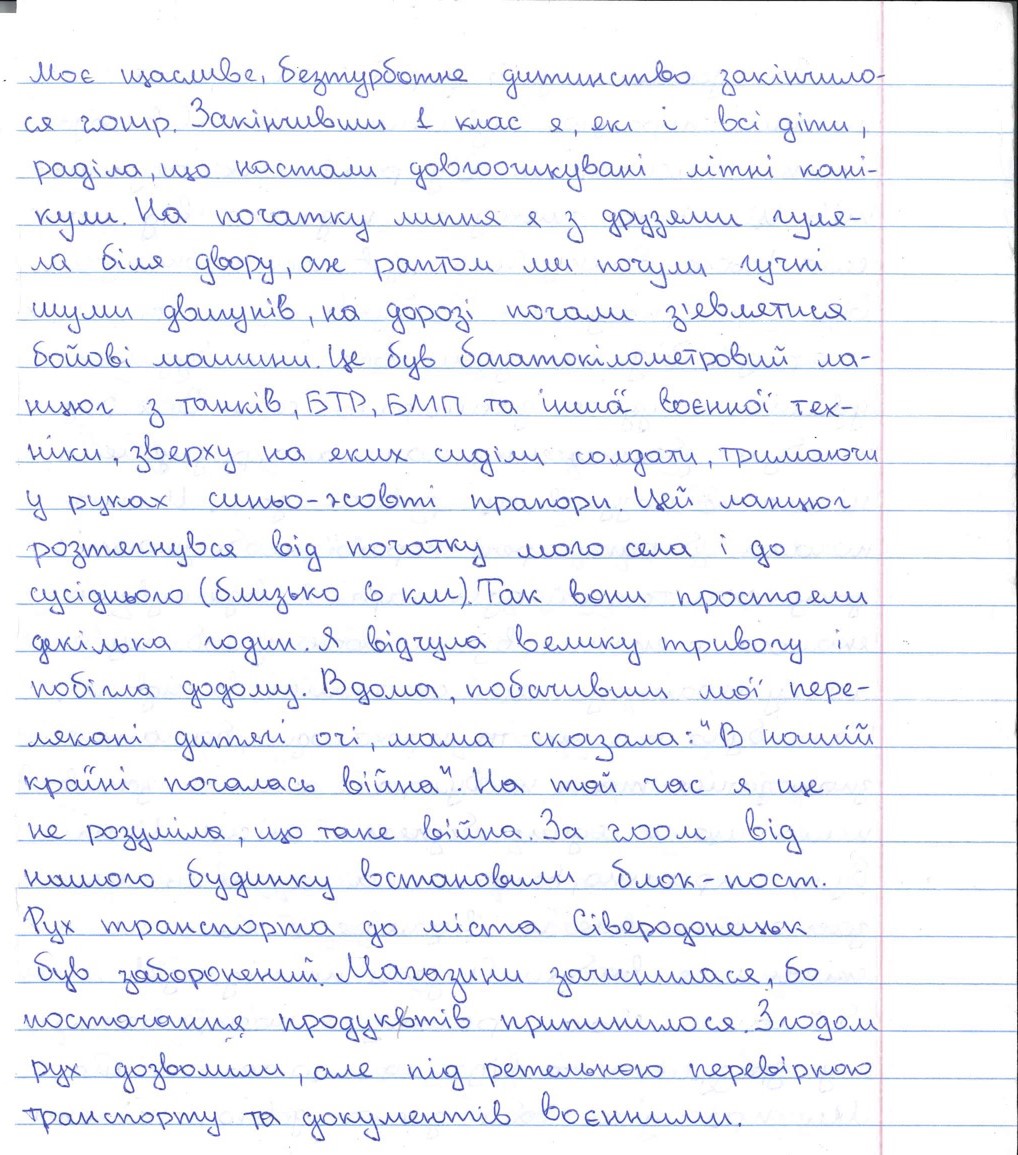 Моє щасливе, безтурботне дитинство закінчило-
ся 2014р. Закінчивши 1 клас я, як і всі діти,
раділа, що настали довгоочикувані літні кані-
кули. На початку липня я з друзями гуля-
ла біля двору, аж раптом ми почули гучні
шуми двигунів, на дорозі почали з'являтися
бойові машини. Це був багатокілометровий ла-
нцюг з танків, БТР, БМП та іншої воєнної тех-
ніки, зверху на яких сиділи солдати, тримаючи
у руках синьо-жовті прапори. Цей ланцюг
розтягнувся від початку мого села і до
сусіднього (близько 6 км). Так вони простояли
декілька годин. Я відчула велику тривогу і
побігла додому. Вдома, побачивши мої пере-
лякані дитячі очі, мама сказала: "В нашій
країні почалась війна". На той час я ще
не розуміла, що таке війна. За 200м від
нашого будинку встановили блок-пост.
Рух транспорта до міста Сіверодонецьк
був заборонений. Магазини зачинилася, бо
постачання продуктів припинилося. Згодом
рух дозволили, але під ретельною перевіркою
транспорту та документів воєнними.